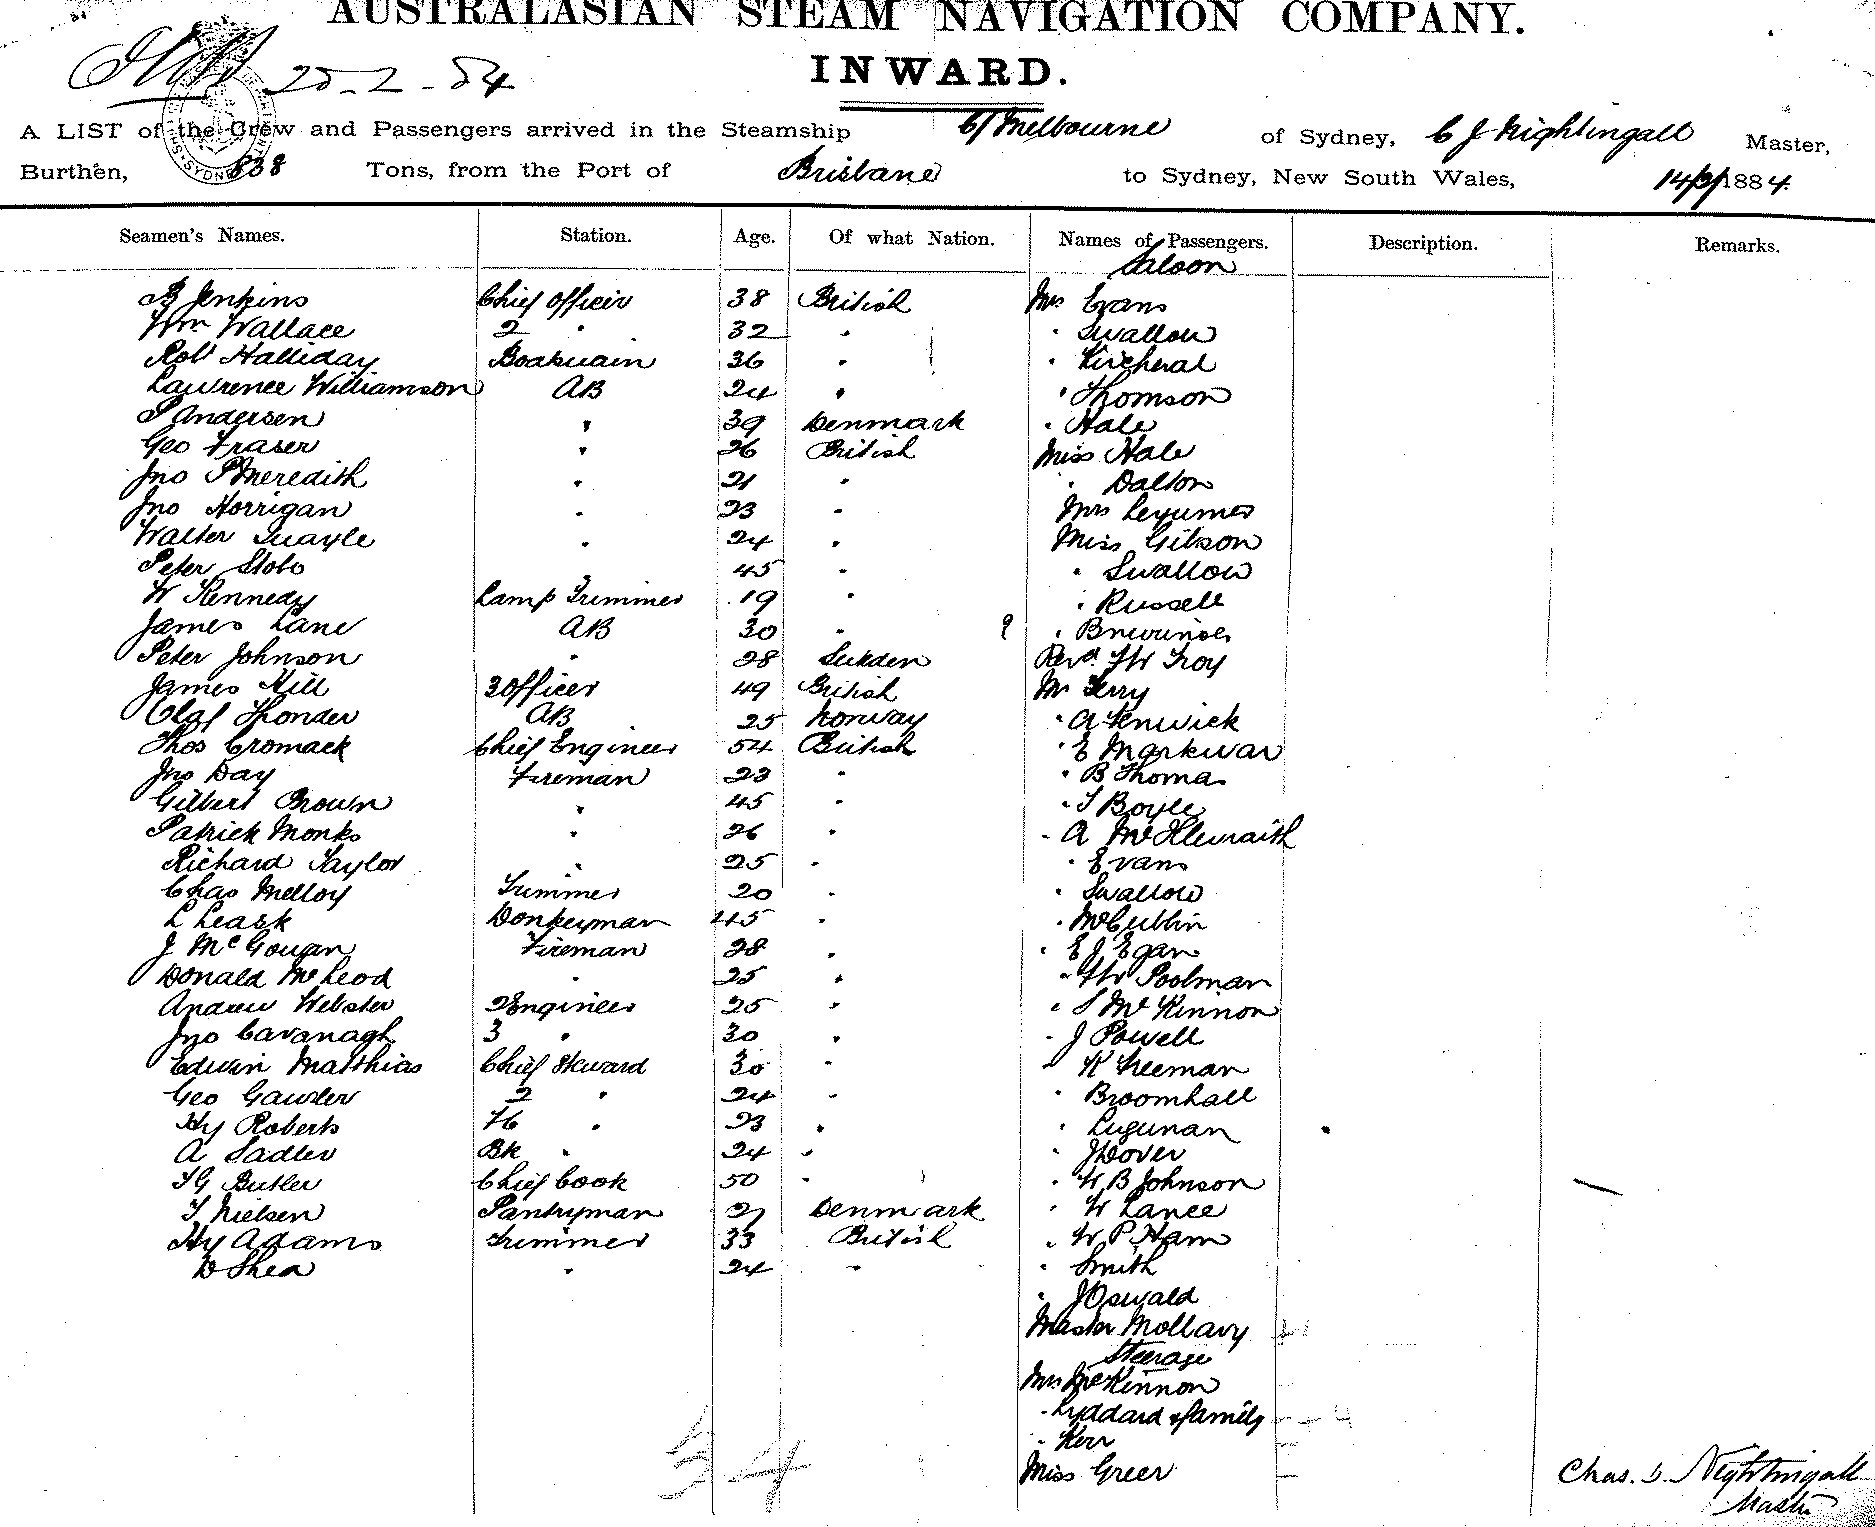 AUSTRALASIAN STEAM NAVIGATION COMPANY.
25-2-84
INWARD.
A LIST of the Crew and Passengers arrived in the Steamship C/ Melbourne of Sydney, C J Nightingall Master,
Burthen, 838 Tons, from the Port of Brisbane to Sydney, New South Wales, 14/2/1884.
Seamen's Names. Station. Age. Of what Nation. Names of Passengers. Description. Remarks.
Saloon
B Jenkins Chief Officer 38 British Mrs Evans
Wm Wallace 2 " 32 " " Swallow
Robt Halliday Boatswain 36 " " Kircheral
Lawrence Williamson AB 24 " " Thomson
P Andersen " 39 Denmark " Hale
Geo Fraser " 26 British Miss Hale
Jno P Meredith " 21 " " Dalton
Jno Horrigan " 23 " Mrs
Walter Quayle " 24 " Miss Gibson
Peter Stobo 45 " " Swallow
W Kennedy Lamp Trimmer 19 " " Russell
James Lane AB 30 " ? "
Peter Johnson " 28 Sweden Revd FW Troy
James Hill 3 Officer 49 British Mr Terry
Olaf Thonder AB 25 Norway " A Fenwick
Thos Cromack Chief Engineer 54 British " E Markwar
Jno Day Fireman 23 " " B Thomas
Gilbert Brown " 45 " " T Boyle
Patrick Monks " 26 " " A McIlwraith
Richard Taylor " 25 " " Evans
Chas Melloy Trimmer 20 " " Swallow
L Leask Donkeyman 45 " " McCubbin
J McGougan Fireman 28 " " E J Egan
Donald McLeod " 25 " " FW Poolman
Andrew Webster 2 Engineer 25 " " S McKinnon
Jno Cavanagh 3 " 30 " " J Powell
Edwin Matthias Chief Steward 30 " " K Freeman
Geo Gawler 2 " 24 " " Broomhall
Hy Roberts " 23 " "
A Sadler Bk " 24 " " J Dover
TG Butler Chief Cook 50 " " W B Johnson
T Nielsen Pantryman 21 Denmark " W Lance
Hy Adams Trimmer 33 British " W P Ham
D Shea " 24 " " Smith
" J Oswald
Master Mollavy
Steerage
Mrs McKinnon
" Lyddard & family 4
" Kerr
Miss Greer
34
Chas. J. Nightingall
Master